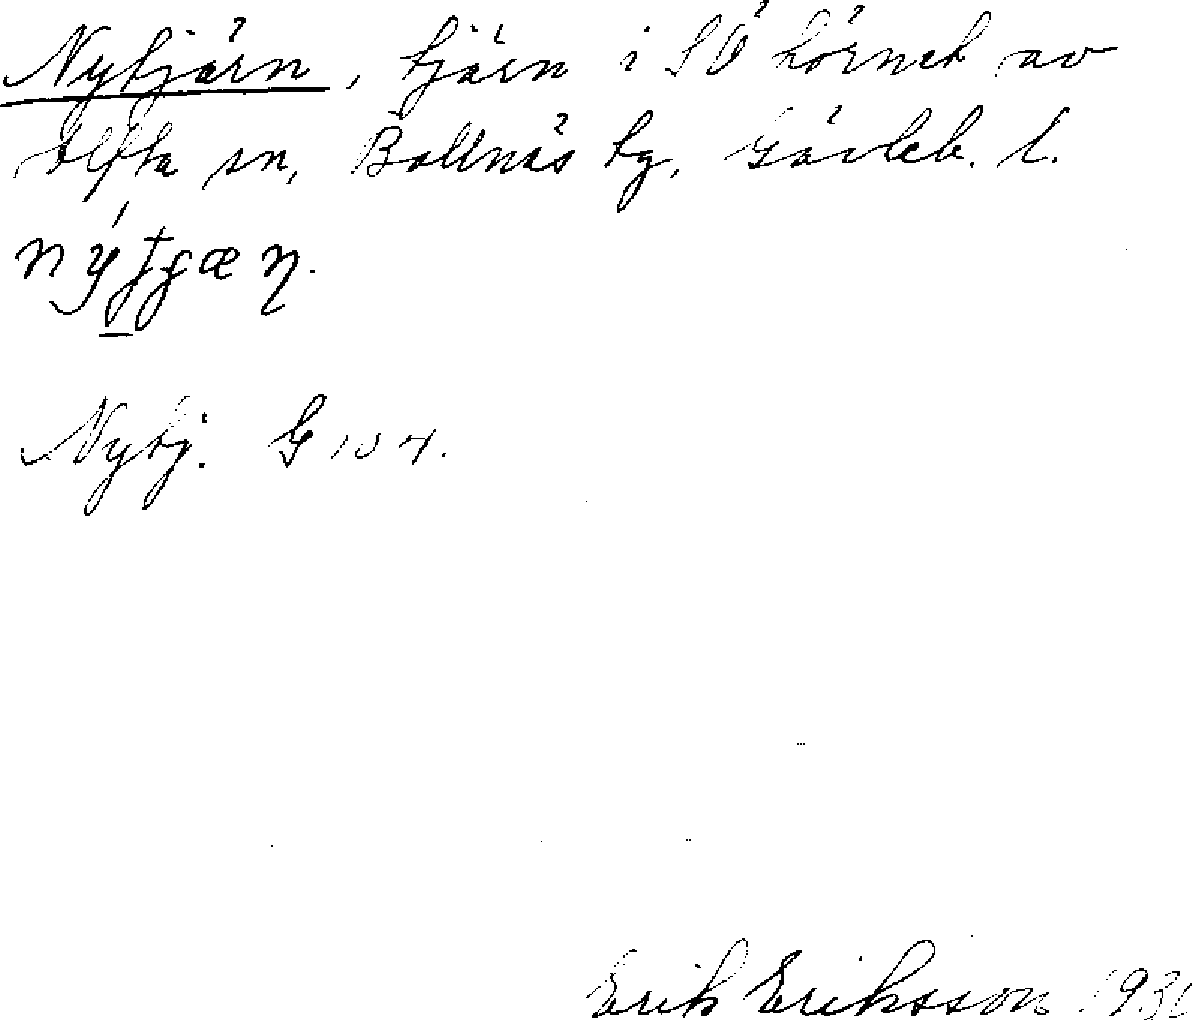 Nytjärn, tjärn i SÖ hörnet av
Alfta sn, Bollnäs tg, Gävleb. l.
Nytj. G 104.
Erik Eriksson